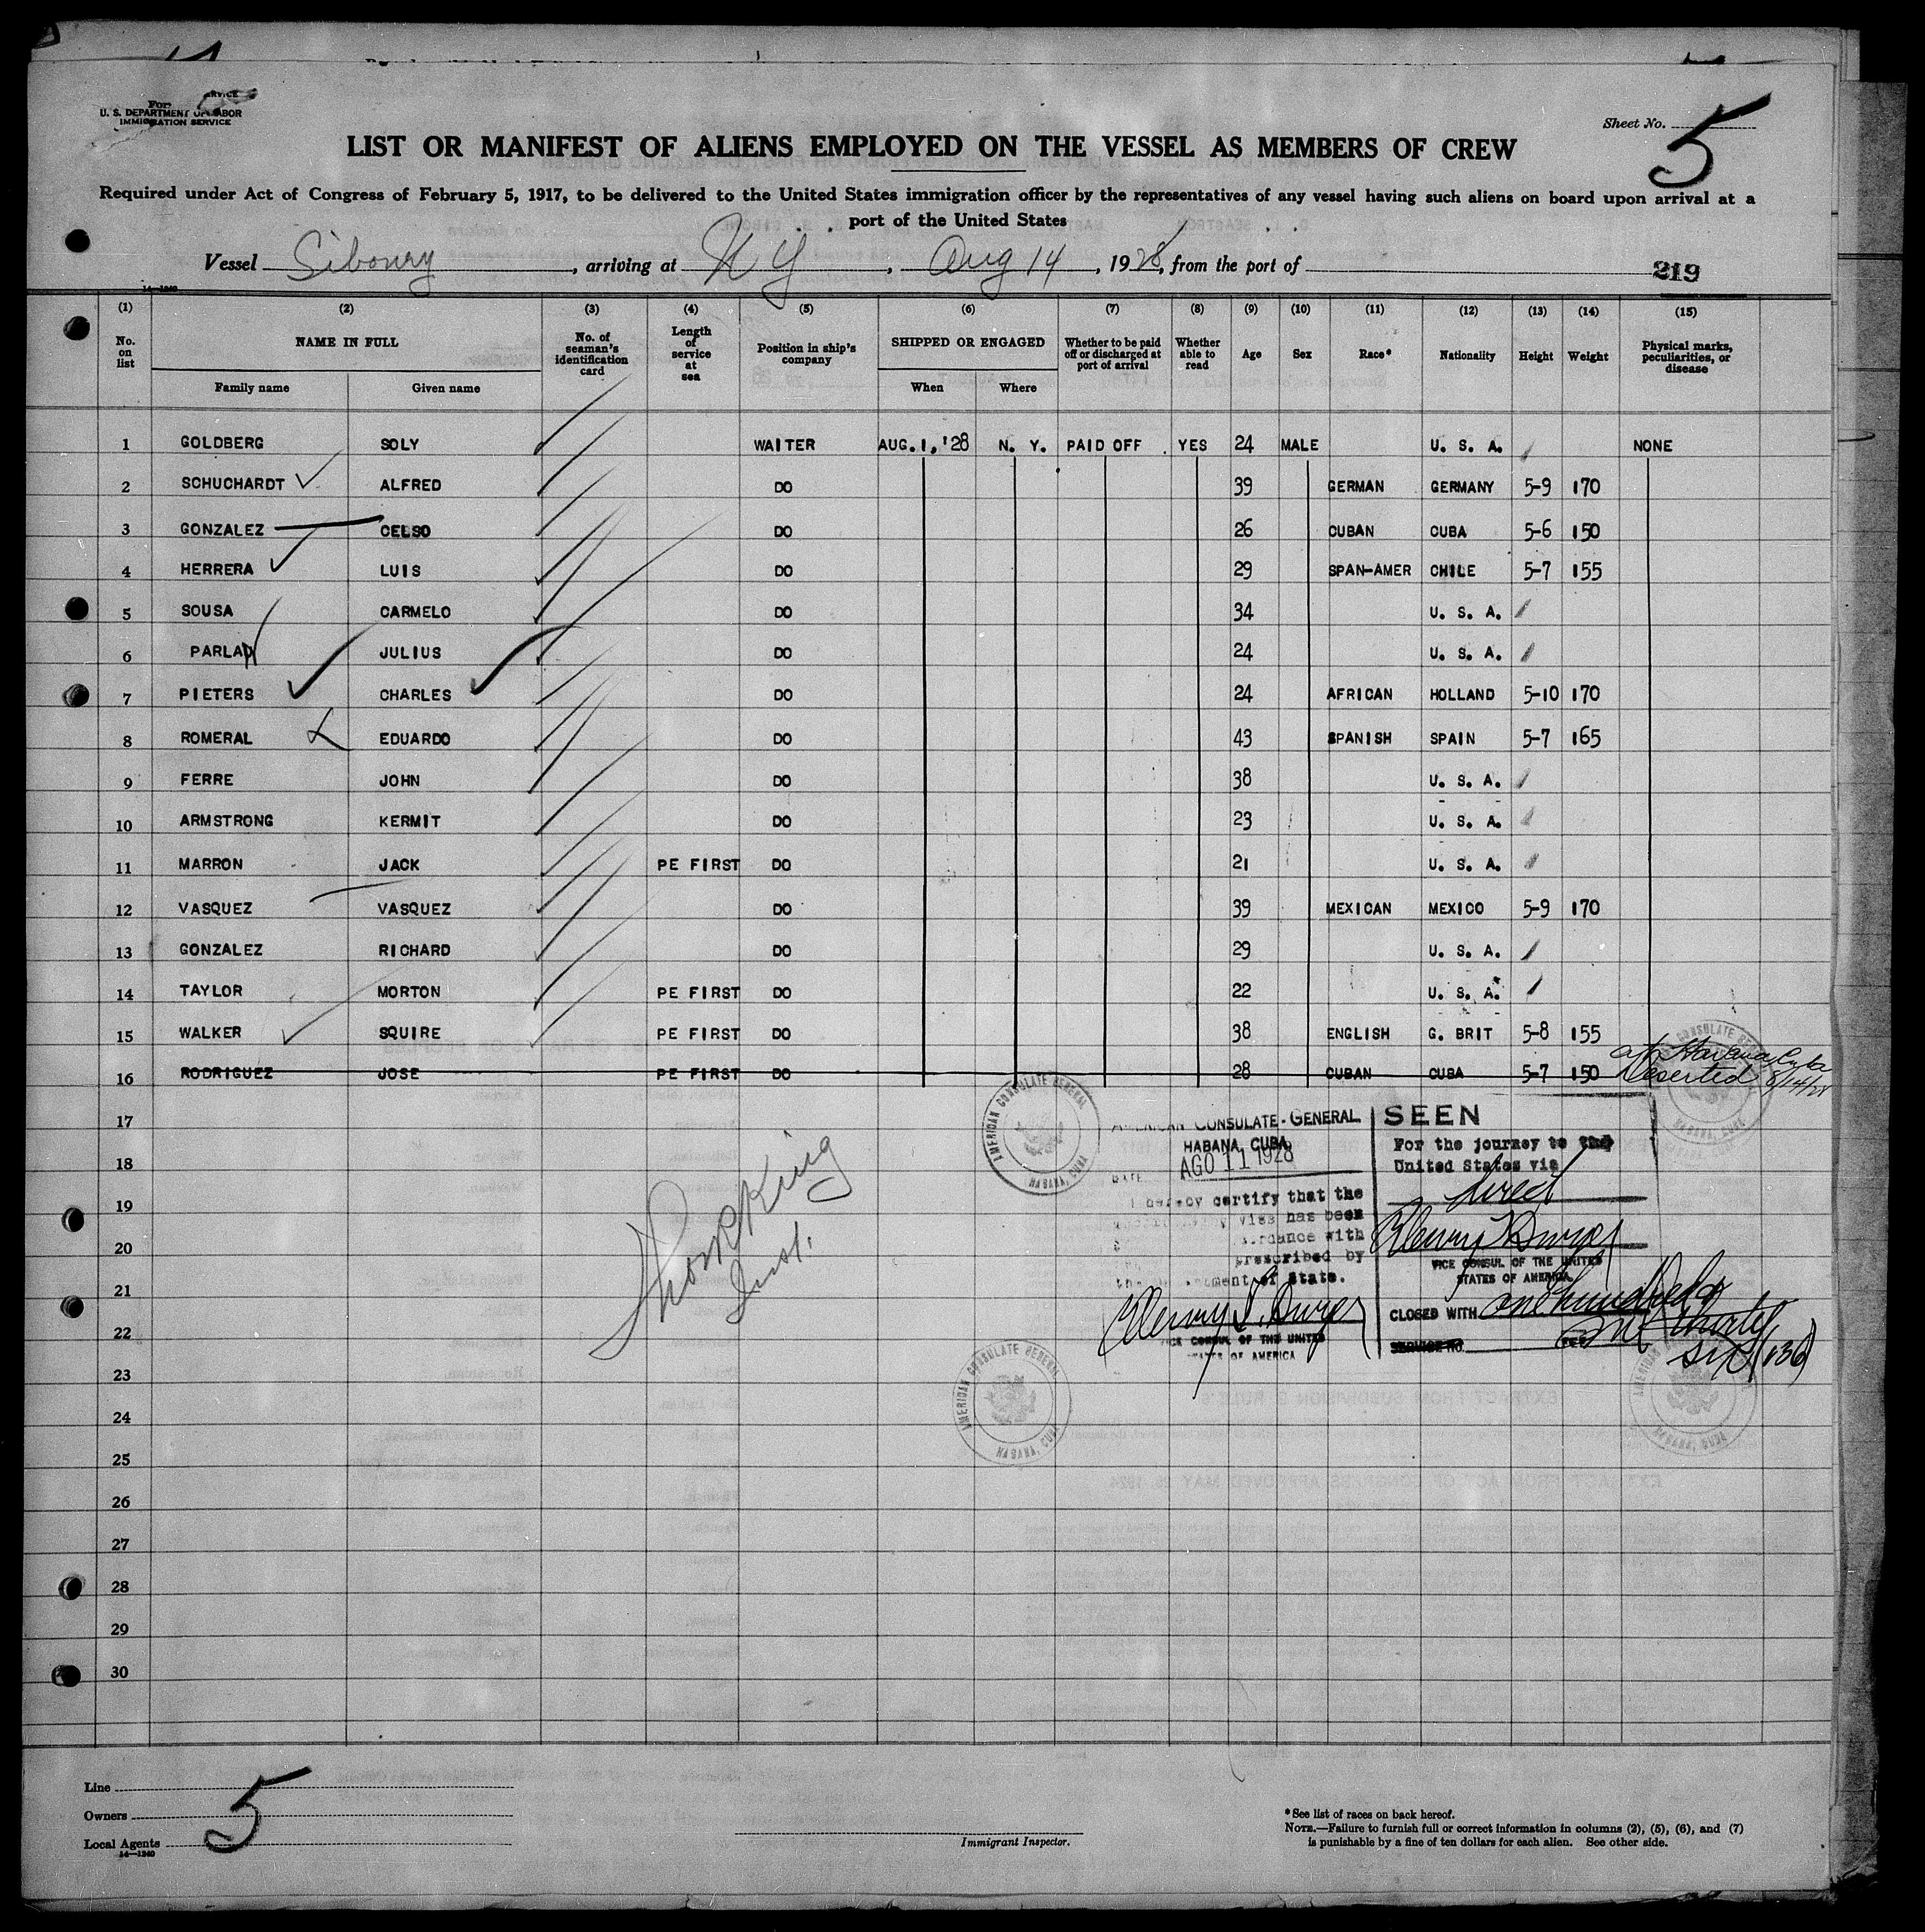 For
U. S. DEPARTMENT OF LABOR
IMMIGRATION SERVICE
Sheet No. 5
LIST OR MANIFEST OF ALIENS EMPLOYED ON THE VESSEL AS MEMBERS OF CREW
Required under Act of Congress of February 5, 1917, to be delivered to the United States immigration officer by the representatives of any vessel having such aliens on board upon arrival at a
port of the United States
Vessel Siboney, arriving at N Y, Aug 14, 1928, from the port of
219
14—1240
(1) (2) (3) (4) (5) (6) (7) (8) (9) (10) (11) (12) (13) (14) (15)
No. on list NAME IN FULL No. of seaman's identification card Length of service at sea Position in ship's company SHIPPED OR ENGAGED Whether to be paid off or discharged at port of arrival Whether able to read Age Sex Race* Nationality Height Weight Physical marks, peculiarities, or disease
Family name Given name When Where
1 GOLDBERG SOLY WAITER AUG. 1, '28 N. Y. PAID OFF YES 24 MALE U. S. A. NONE
2 SCHUCHARDT ALFRED DO 39 GERMAN GERMANY 5-9 170
3 GONZALEZ CELSO DO 26 CUBAN CUBA 5-6 150
4 HERRERA LUIS DO 29 SPAN-AMER CHILE 5-7 155
5 SOUSA CARMELO DO 34 U. S. A.
6 PARLAD JULIUS DO 24 U. S. A.
7 PIETERS CHARLES DO 24 AFRICAN HOLLAND 5-10 170
8 ROMERAL EDUARDO DO 43 SPANISH SPAIN 5-7 165
9 FERRE JOHN DO 38 U. S. A.
10 ARMSTRONG KERMIT DO 23 U. S. A.
11 MARRON JACK PE FIRST DO 21 U. S. A.
12 VASQUEZ VASQUEZ DO 39 MEXICAN MEXICO 5-9 170
13 GONZALEZ RICHARD DO 29 U. S. A.
14 TAYLOR MORTON PE FIRST DO 22 U. S. A.
15 WALKER SQUIRE PE FIRST DO 38 ENGLISH G. BRIT 5-8 155
at Havana Cuba
16 RODRIGUEZ JOSE PE FIRST DO 28 CUBAN CUBA 5-7 150 Deserted 8/14/28
17
18
19
20
21
22
23
24
25
26
27
28
29
30
AMERICAN CONSULATE GENERAL
HABANA, CUBA
AMERICAN CONSULATE-GENERAL
HABANA, CUBA
DATE AGO 11 1928
I hereby certify that the
visa has been
accordance with
prescribed by
the Department of State.
VICE CONSUL OF THE UNITED
STATES OF AMERICA
SEEN
For the journey to the
United States via
direct
VICE CONSUL OF THE UNITED
STATES OF AMERICA
CLOSED WITH one hundred &
thirty
six (136)
SERVICE NO. FEE
AMERICAN CONSULATE GENERAL
HABANA, CUBA
AMERICAN CONSULATE GENERAL
HABANA, CUBA
Insp.
Line
Owners
Local Agents
14—1240
5
Immigrant Inspector.
*See list of races on back hereof.
NOTE.—Failure to furnish full or correct information in columns (2), (5), (6), and (7)
is punishable by a fine of ten dollars for each alien. See other side.